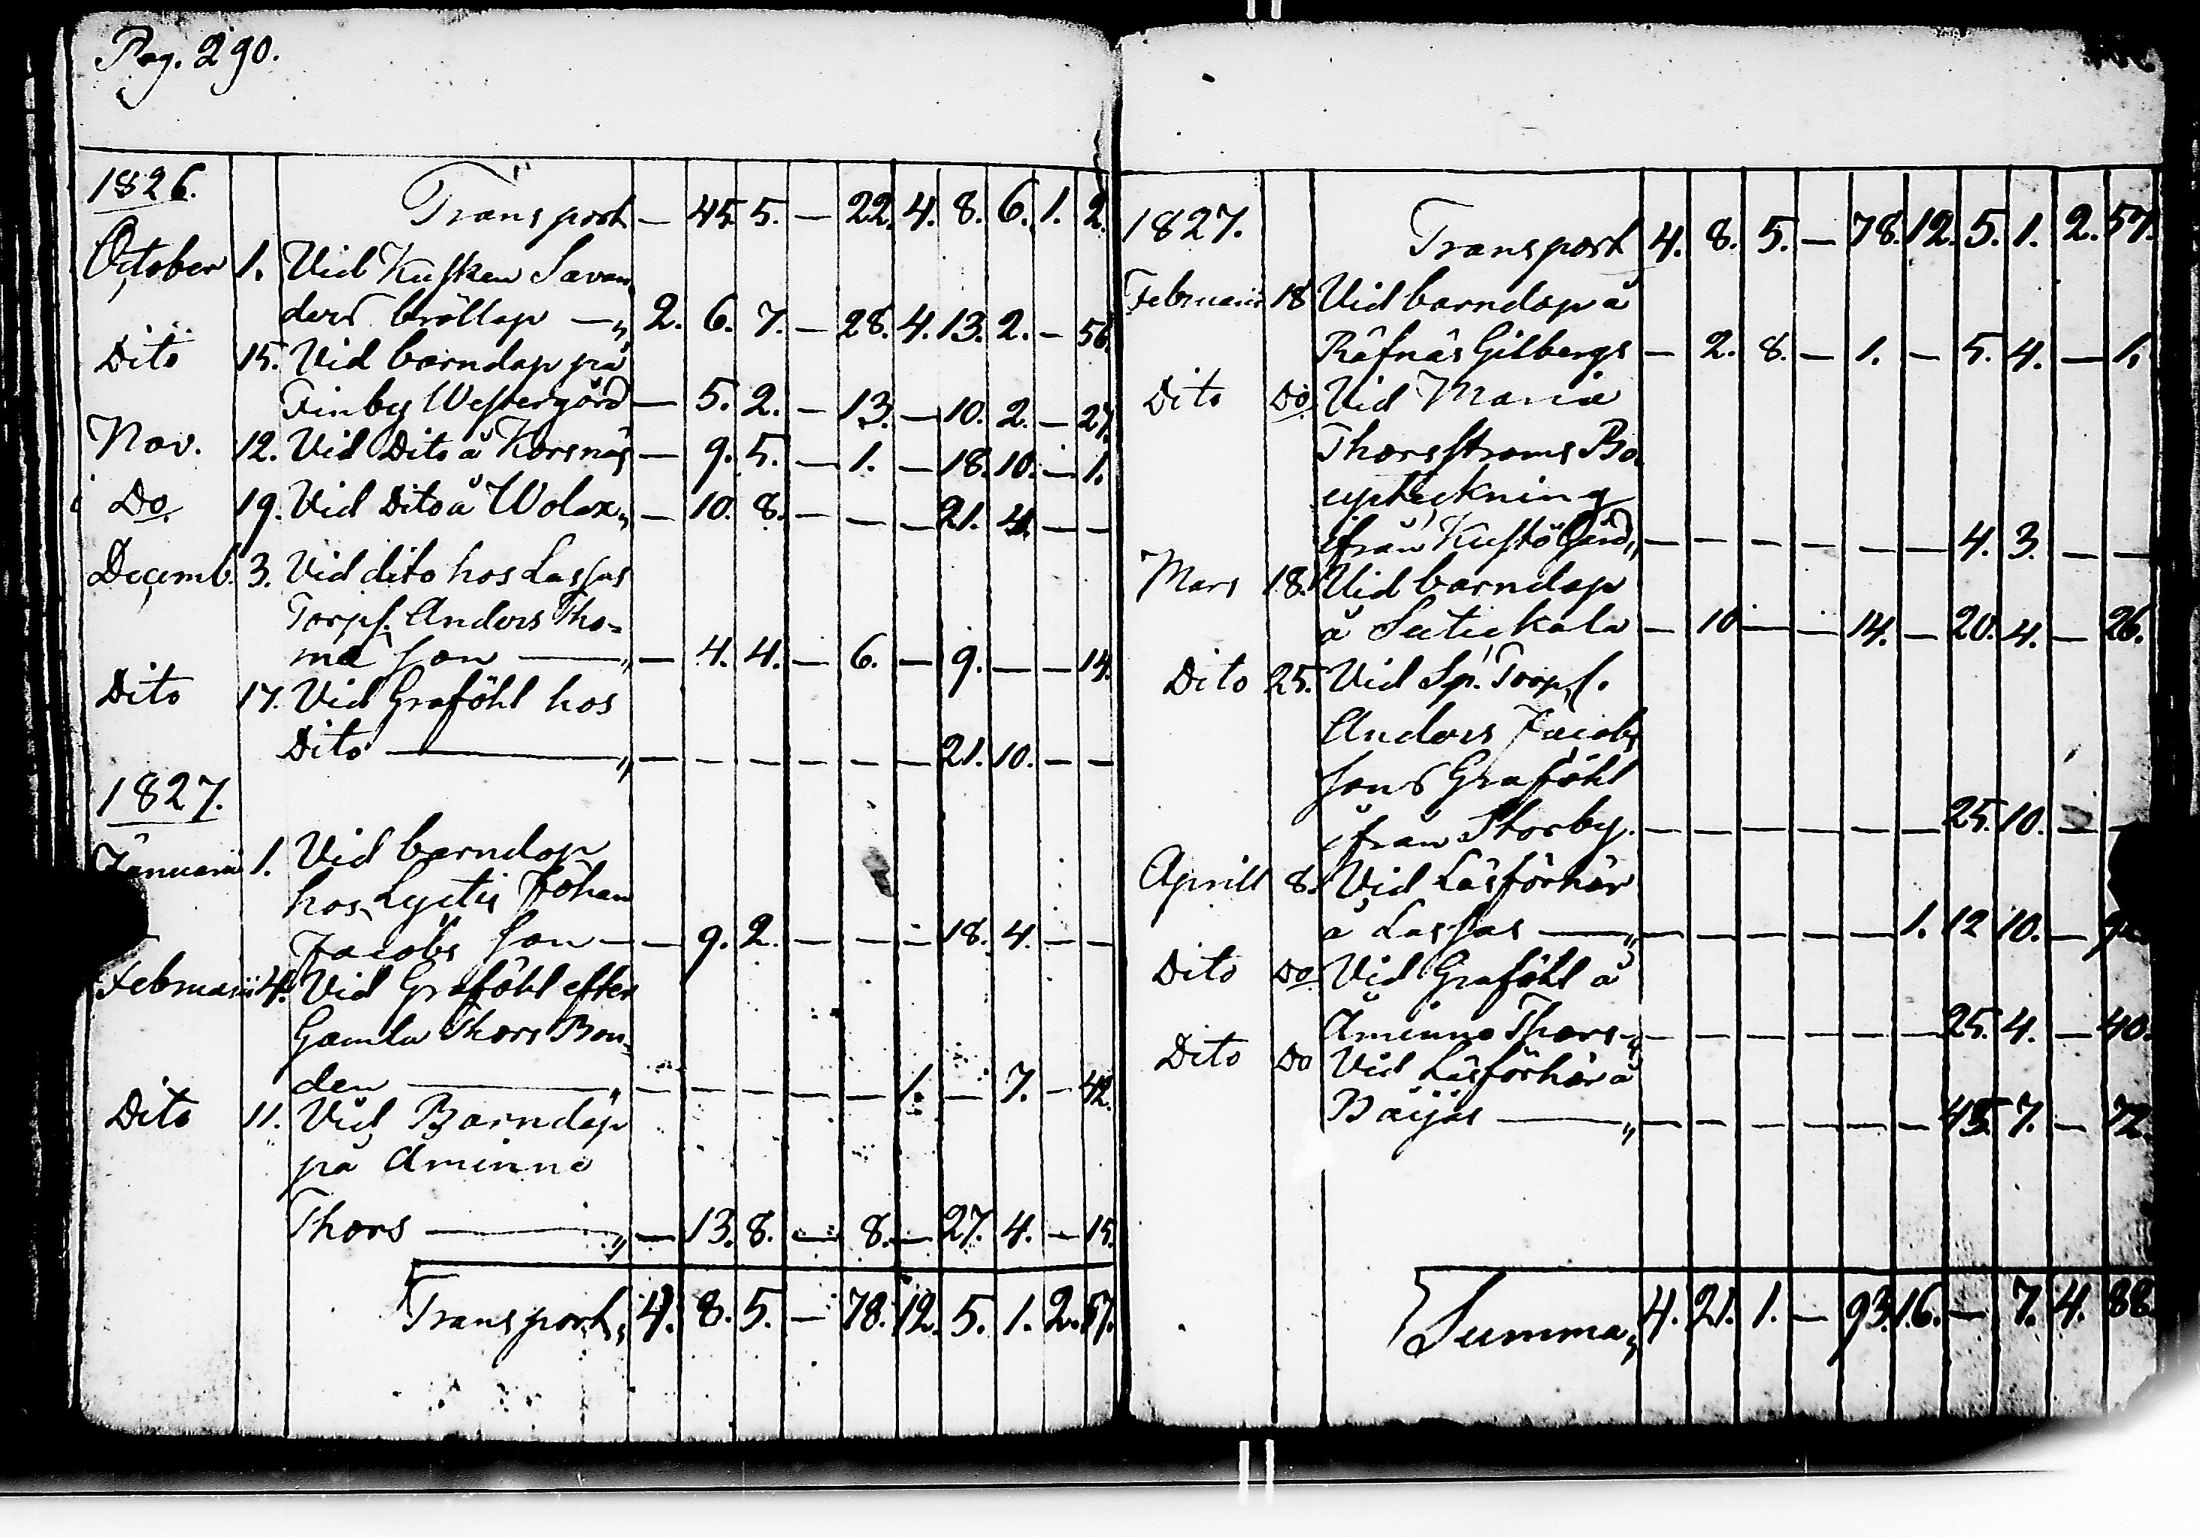 Pag. 290.
1826.
Transport — 45. 5. — 22. 4. 8. 6. 1. 2.
October 1. Vid Kusken Savan
ders bröllop — „ 2. 6. 7. — 28. 4. 13. 2. — 56.
Dito 15. Vid barndop på
Finby Westergård — 5. 2. — 13. — 10. 2. — 27.
Nov. 12. Vid Dito å Korsnäs — 9. 5. — 1. — 18. 10. — 1.
Do 19. Vid Dito å Wolax „ — 10. 8. — — — 21. 4. — —
Decemb. 3. Vid dito hos Lassas
Torpf. Anders Tho-
mæ Son — „ — 4. 4. — 6. — 9. — — 14.
Dito 17. Vid Graföhl hos
Dito — „ — — — — — — 21. 10. — —
1827.
Januarii 1. Vid barndop
hos Lyctis Johan
Jacobs Son — — 9. 2. — — — 18. 4. — —
Februarii 4. Vid Graföhl efter
Gamla Thors Bon-
den — „ — — — — — 1. — 7. — 42.
Dito 11. Vid Barndop
på Åminne
Thors — „ — 13. 8. — 8. — 27. 4. — 15.
Transport „ 4. 8. 5. — 78. 12. 5. 1. 2. 57.
1827.
Transport 4. 8. 5. — 78. 12. 5. 1. 2. 57.
Februarii 18 Vid barndop å
Räfnäs Gilbergs — 2. 8. — 1. — 5. 4. — 1.
Dito Do Vid Maria
Thorsströms Bo
upteckning
ifrån Kustö Gård „ — — — — — — 4. 3. — —
Mars 18. Vid barndop
å Sutickala — 10 — — 14. — 20. 4. — 26.
Dito 25. Vid Sp. Torpf.
Anders Jacobs
Sons Graföhl
ifrån Storby. — — — — — — 25. 10. — —
Aprill 8. Vid Läsförhör
å Lassas — „ — — — — — 1. 12 10. —
Dito Do Vid Graföhl å
Åminne Thors „ — — — — — — 25. 4. — 40.
Dito Do Vid Läsförhör å
Böijas — „ — — — — — — 45. 7. — 72.
Summa „ 4. 21. 1. — 93. 16. — 7. 4. 88.